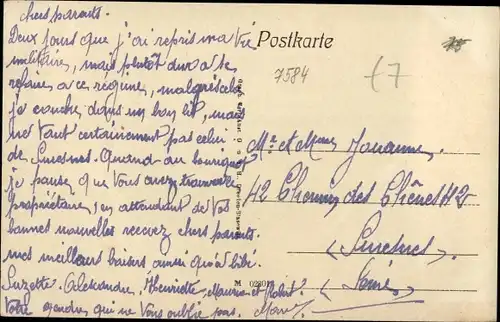 chers parents.
Deux jours que j'ai repris ma vie
militaire, mais plutôt dur a se
refaire a ce régime, malgré cela
je couche dans un bon lit, mais
ne vaut certainement pas celui
de Suresnes. Quand au bourriquot
je pense que vous avez trouvé le
propriétaire, en attendant de vos
bonnes nouvelles recevez chers parents
mes meilleurs baisers ainsi qu'à bébé.
Suzette. Alexandre, Henriette, Maurice et Robert.
Votre gendre qui ne vous oublie pas.
Postkarte
7584
Mr et Mme Jouanne.
42 Chemin des Chênes H2
(Suresnes)
(Seine)
M